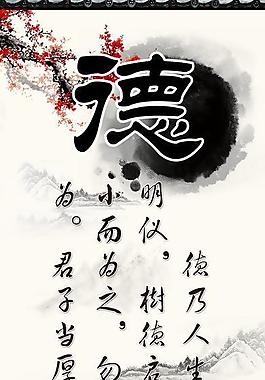 德
德乃人生
明仪,樹德
小而为之,勿
为。君子当厚